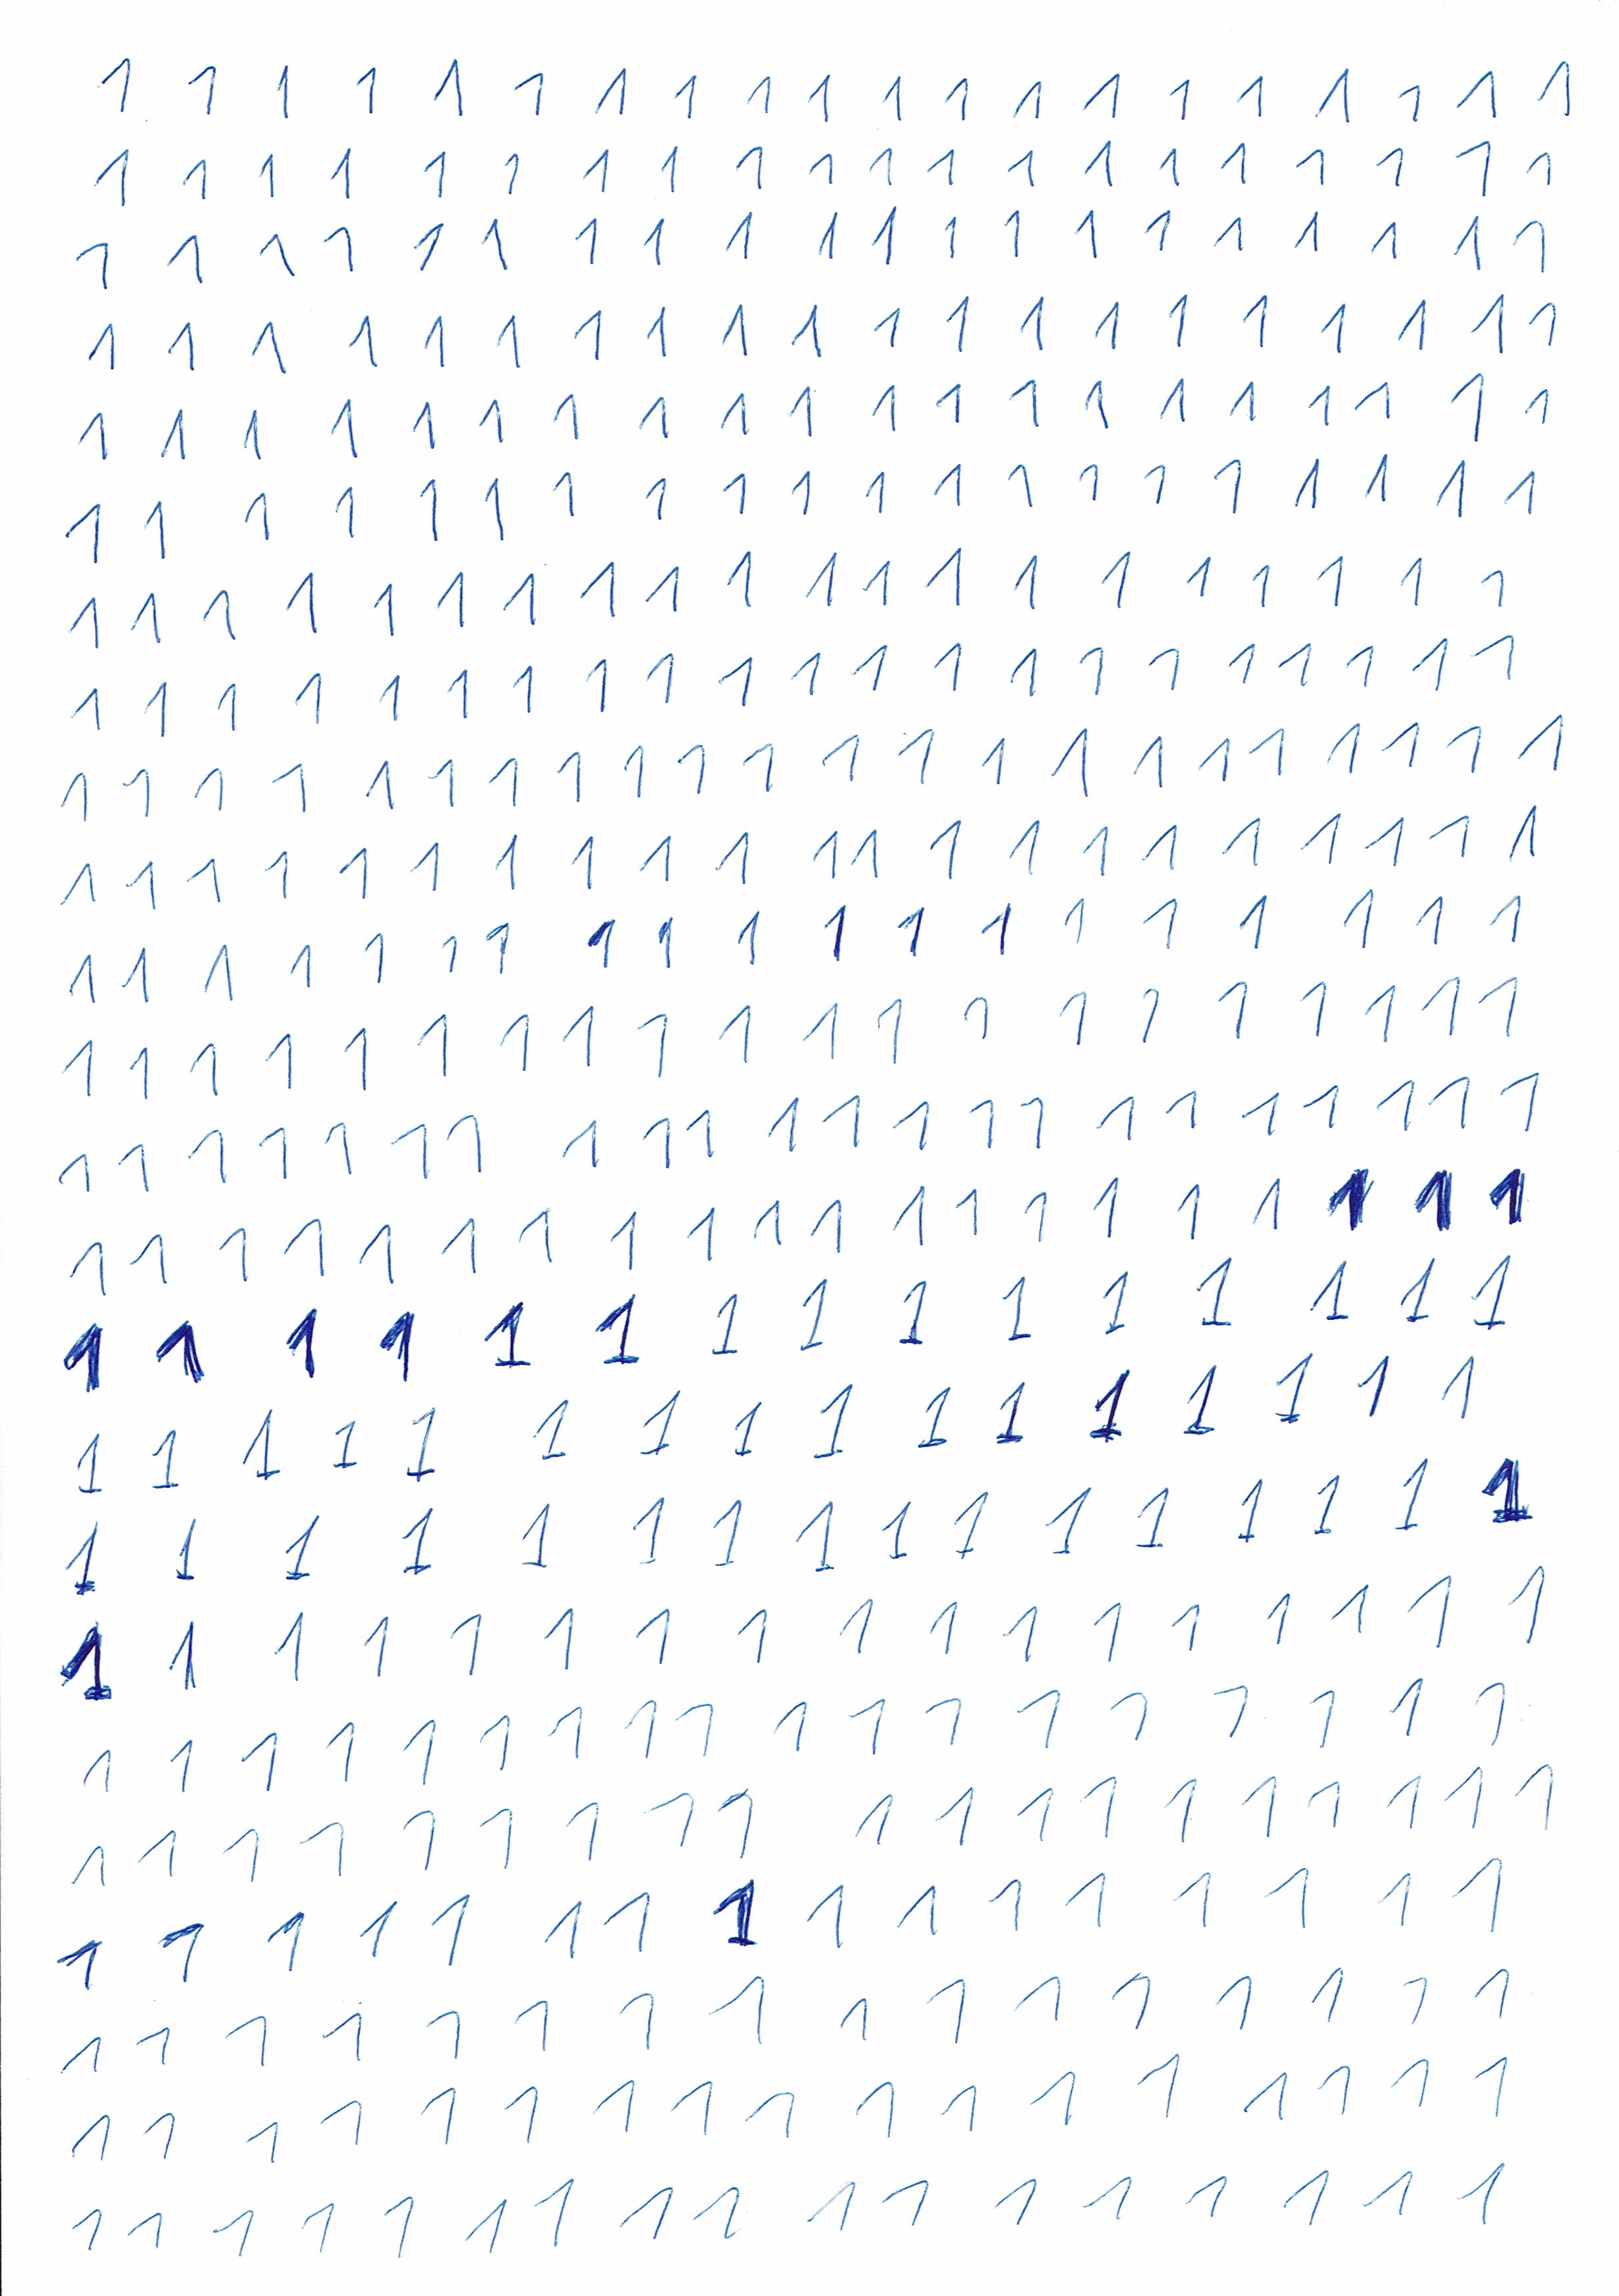 1 1 1 1 1 1 1 1 1 1 1 1 1 1 1 1 1 1 1 1
1 1 1 1 1 1 1 1 1 1 1 1 1 1 1 1 1 1 1 1
1 1 1 1 1 1 1 1 1 1 1 1 1 1 1 1 1 1 1 1
1 1 1 1 1 1 1 1 1 1 1 1 1 1 1 1 1 1 1 1
1 1 1 1 1 1 1 1 1 1 1 1 1 1 1 1 1 1 1 1
1 1 1 1 1 1 1 1 1 1 1 1 1 1 1 1 1 1 1 1
1 1 1 1 1 1 1 1 1 1 1 1 1 1 1 1 1 1 1 1
1 1 1 1 1 1 1 1 1 1 1 1 1 1 1 1 1 1 1 1 1
1 1 1 1 1 1 1 1 1 1 1 1 1 1 1 1 1 1 1 1 1 1
1 1 1 1 1 1 1 1 1 1 1 1 1 1 1 1 1 1 1 1 1
1 1 1 1 1 1 1 1 1 1 1 1 1 1 1 1 1 1 1
1 1 1 1 1 1 1 1 1 1 1 1 1 1 1 1 1 1 1 1
1 1 1 1 1 1 1 1 1 1 1 1 1 1 1 1 1 1 1 1 1 1
1 1 1 1 1 1 1 1 1 1 1 1 1 1 1 1 1 1 1 1
1 1 1 1 1 1 1 1 1 1 1 1 1 1 1
1 1 1 1 1 1 1 1 1 1 1 1 1 1 1 1
1 1 1 1 1 1 1 1 1 1 1 1 1 1 1 1
1 1 1 1 1 1 1 1 1 1 1 1 1 1 1 1 1
1 1 1 1 1 1 1 1 1 1 1 1 1 1 1 1 1 1
1 1 1 1 1 1 1 1 1 1 1 1 1 1 1 1 1 1 1
1 1 1 1 1 1 1 1 1 1 1 1 1 1 1 1
1 1 1 1 1 1 1 1 1 1 1 1 1 1 1 1
1 1 1 1 1 1 1 1 1 1 1 1 1 1 1 1 1
1 1 1 1 1 1 1 1 1 1 1 1 1 1 1 1 1